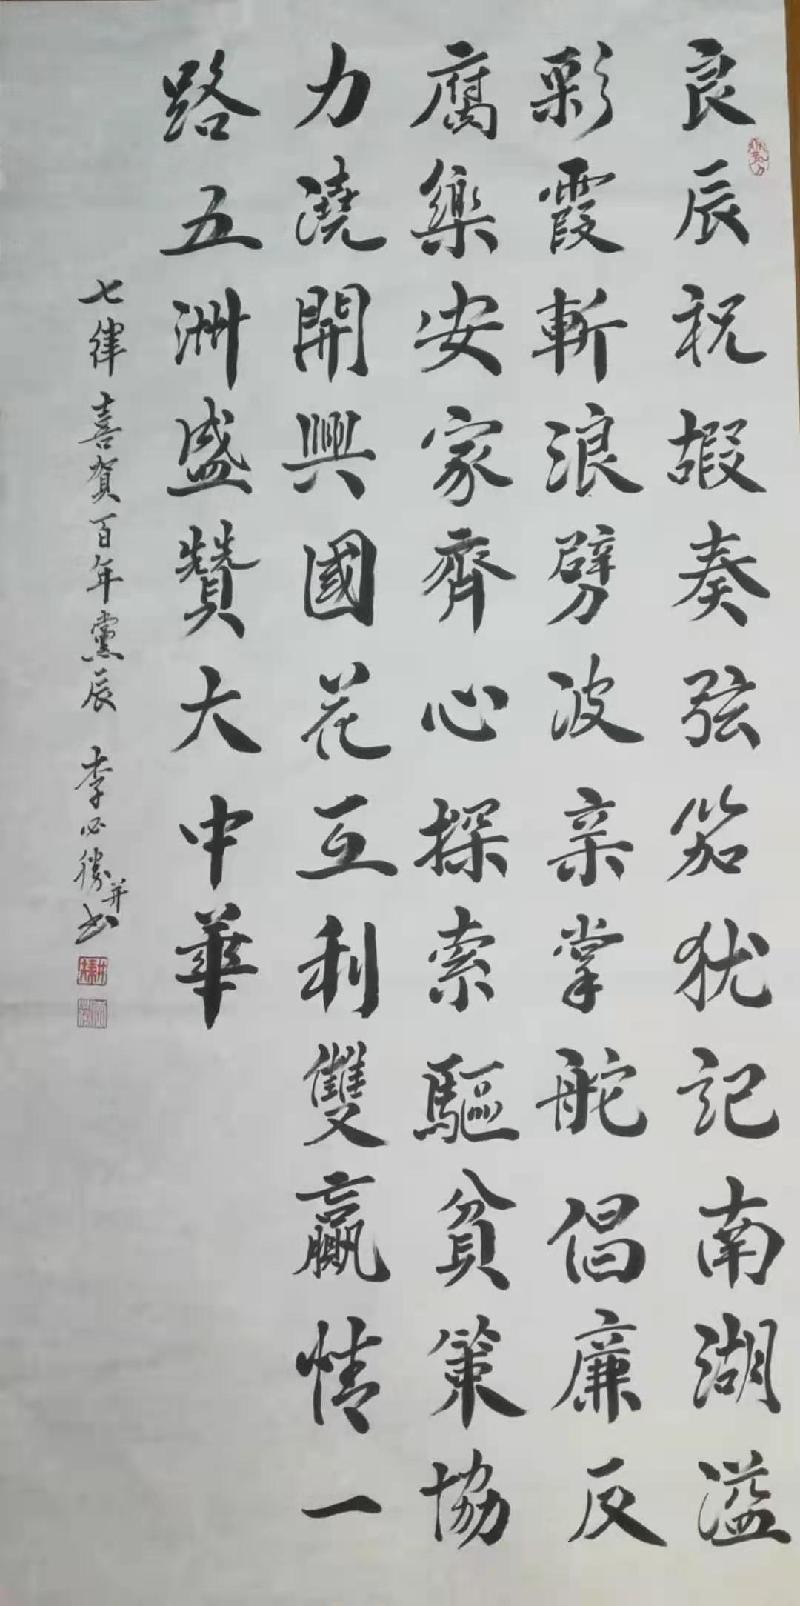 良辰祝嘏奏弦笳犹記南湖溢
彩霞斬浪劈波亲掌舵倡廉反
腐樂安家齊心探索驅貧策協
力澆開興國花互利雙贏情一
路五洲盛贊大中華
七律喜贺百年黨辰 李必勝并书